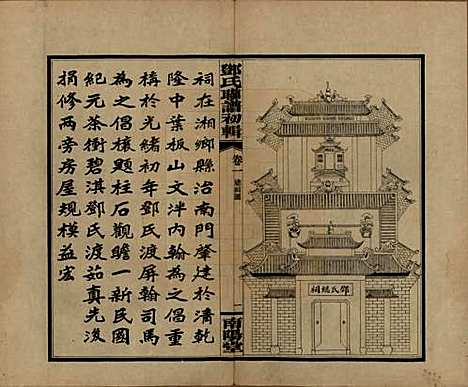 鄧氏總祠
鄧氏聯譜初輯
卷一
南陽堂
祠在湘鄉縣治南門肇建於清乾
隆中葉板山文泮內翰為之倡重
構於光緒初年鄧氏渡屏翰司馬
為之倡櫞題柱石觀瞻一新民國
紀元茶衝碧淇鄧氏渡茹真先後
捐修兩旁房屋規模益宏